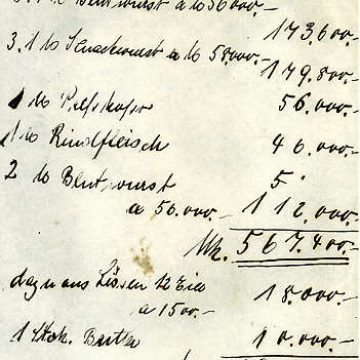 3.1 lb Blutwurst a lb 56000.-
173.600.-
3.1 lb Schackwurst a lb 58000.-
179.800.-
1 lb Preßkopf 56.000.-
1 lb Rindfleisch 46.000.-
2 lb Blutwurst 5
a 56.000.- 112.000.-
Mk. 567.400.-
dazu aus Lissen 12 Eier 18.000.-
a 1500.-
1 Stck. Butter 10.000.-